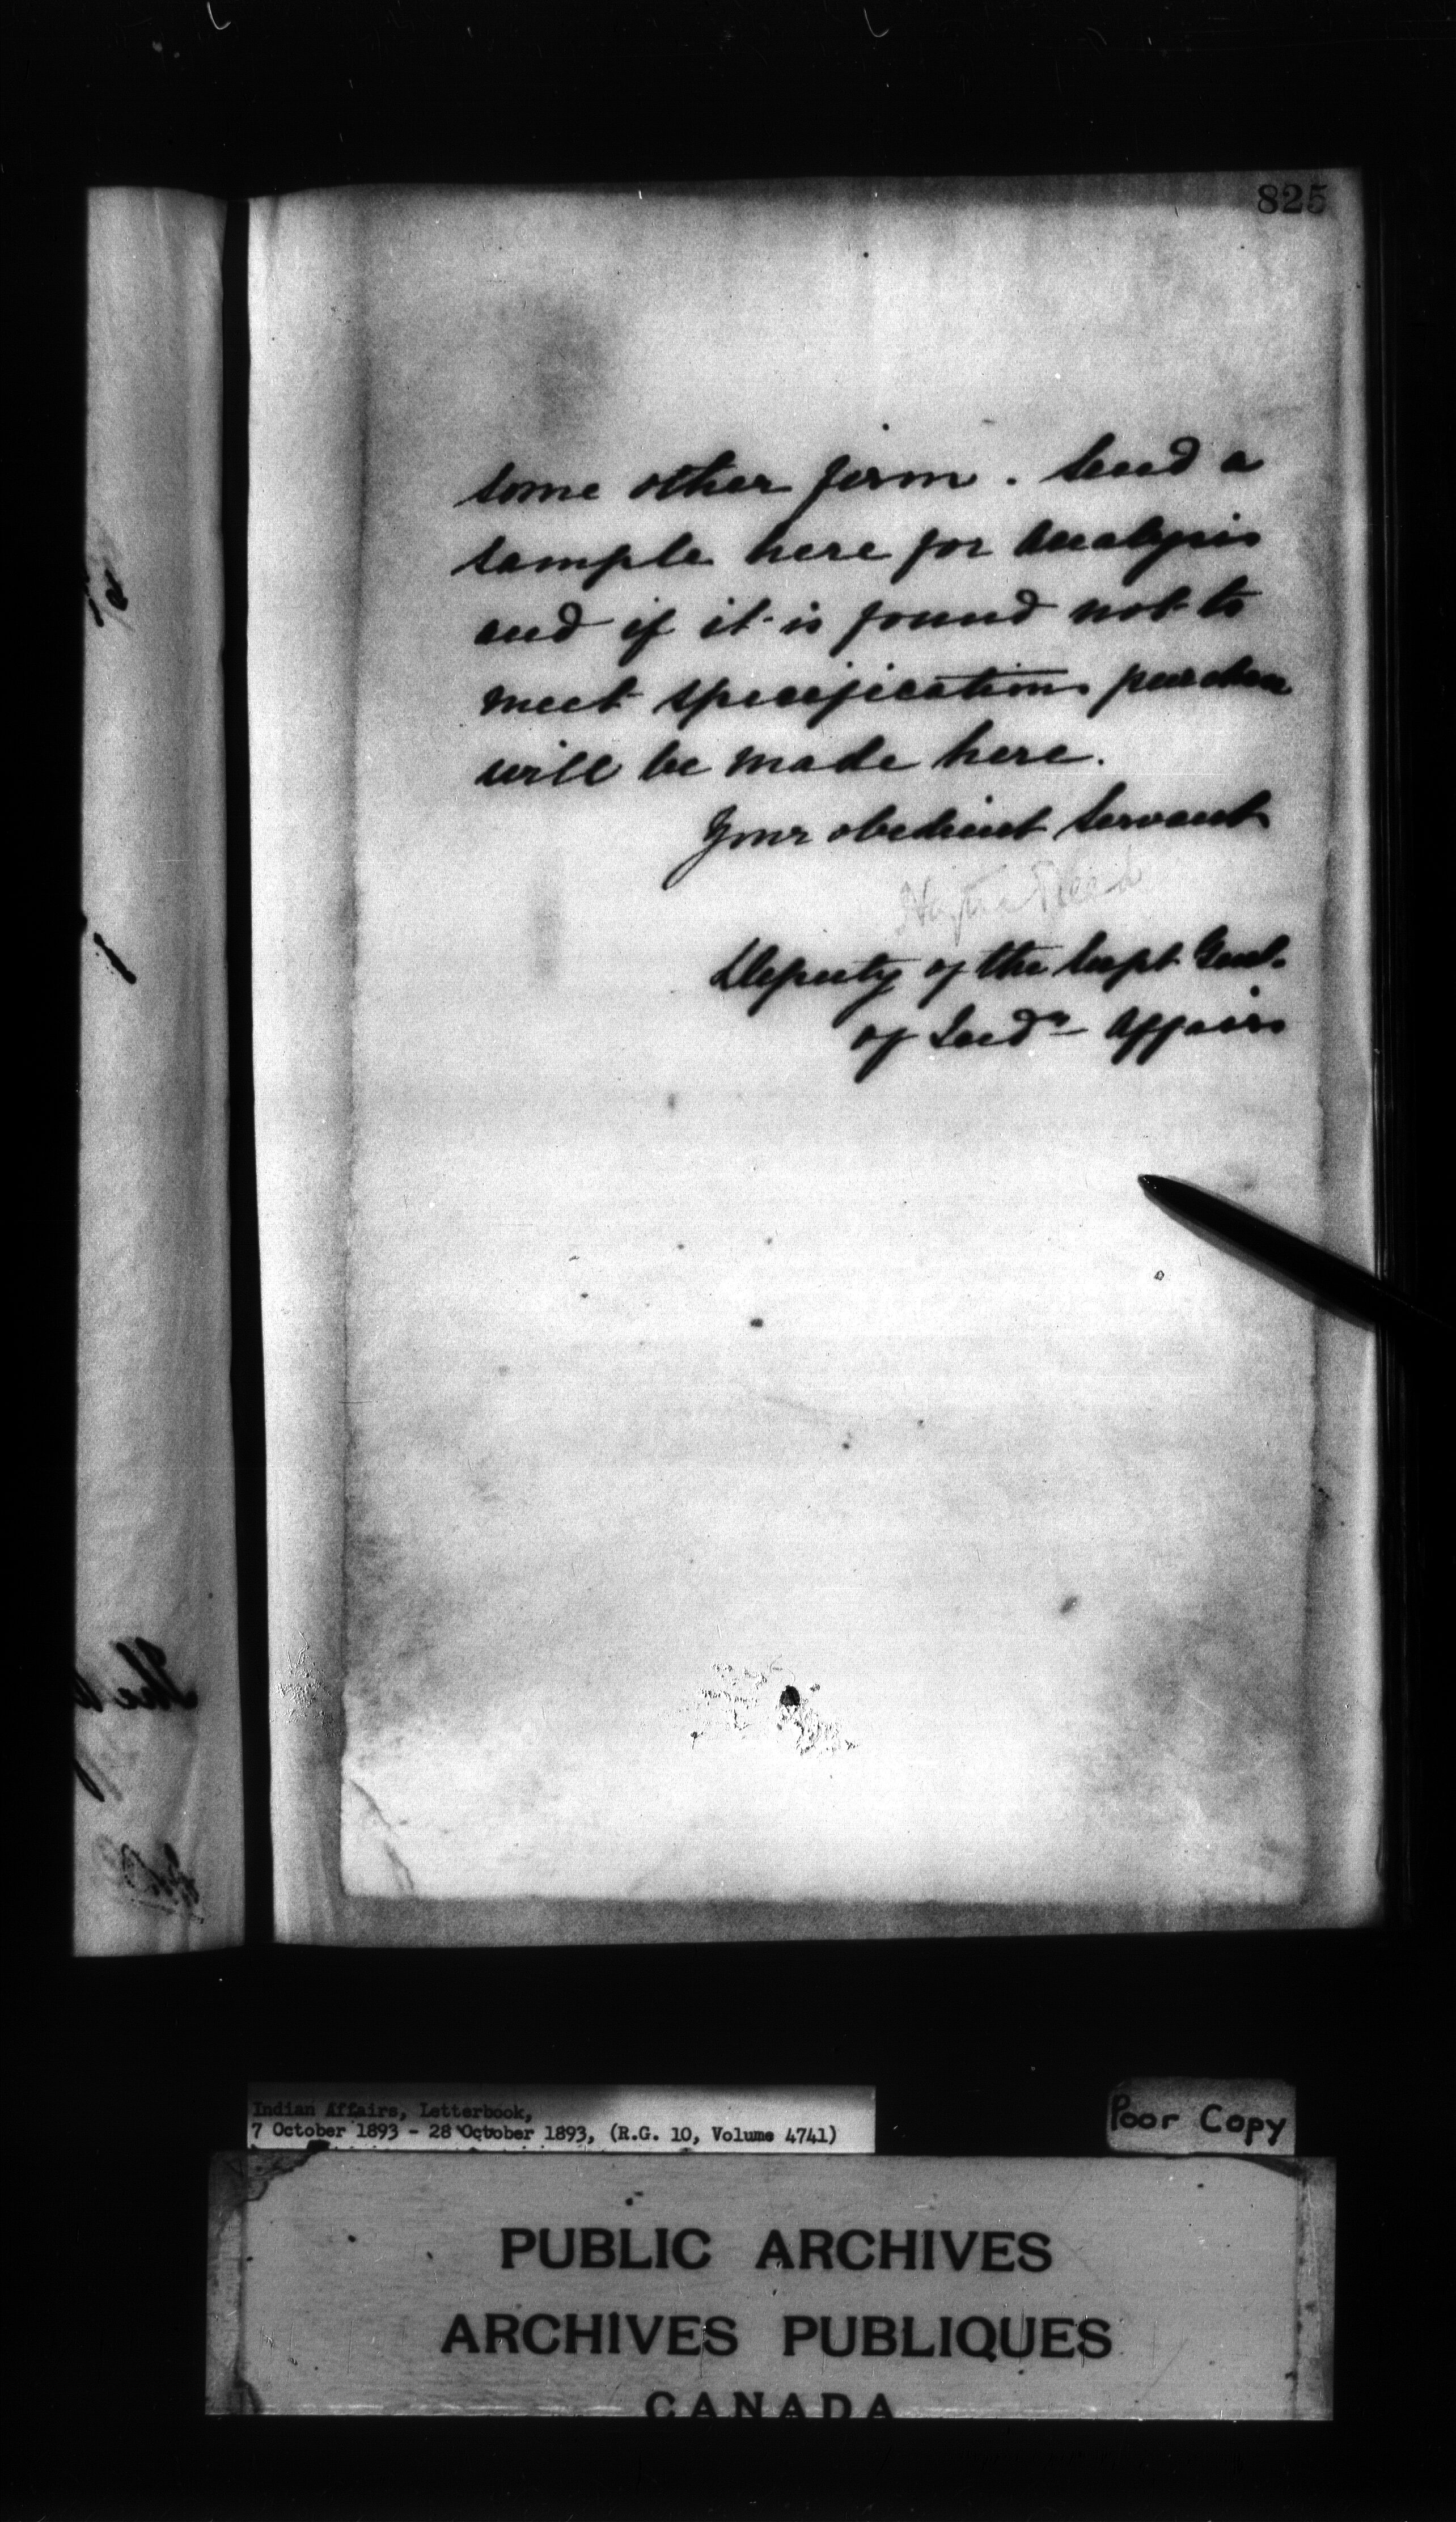 825
some other firm. Send a
sample here for analysis
and if it is found not to
meet specifications purchase
will be made here.
Your obedient Servant
Hayter Reed
Deputy of the Supt Genl.
of Indn Affairs
Indian Affairs, Letterbook,
7 October 1893 - 28 October 1893, (R.G. 10, Volume 4741)
Poor Copy
PUBLIC ARCHIVES
ARCHIVES PUBLIQUES
CANADA